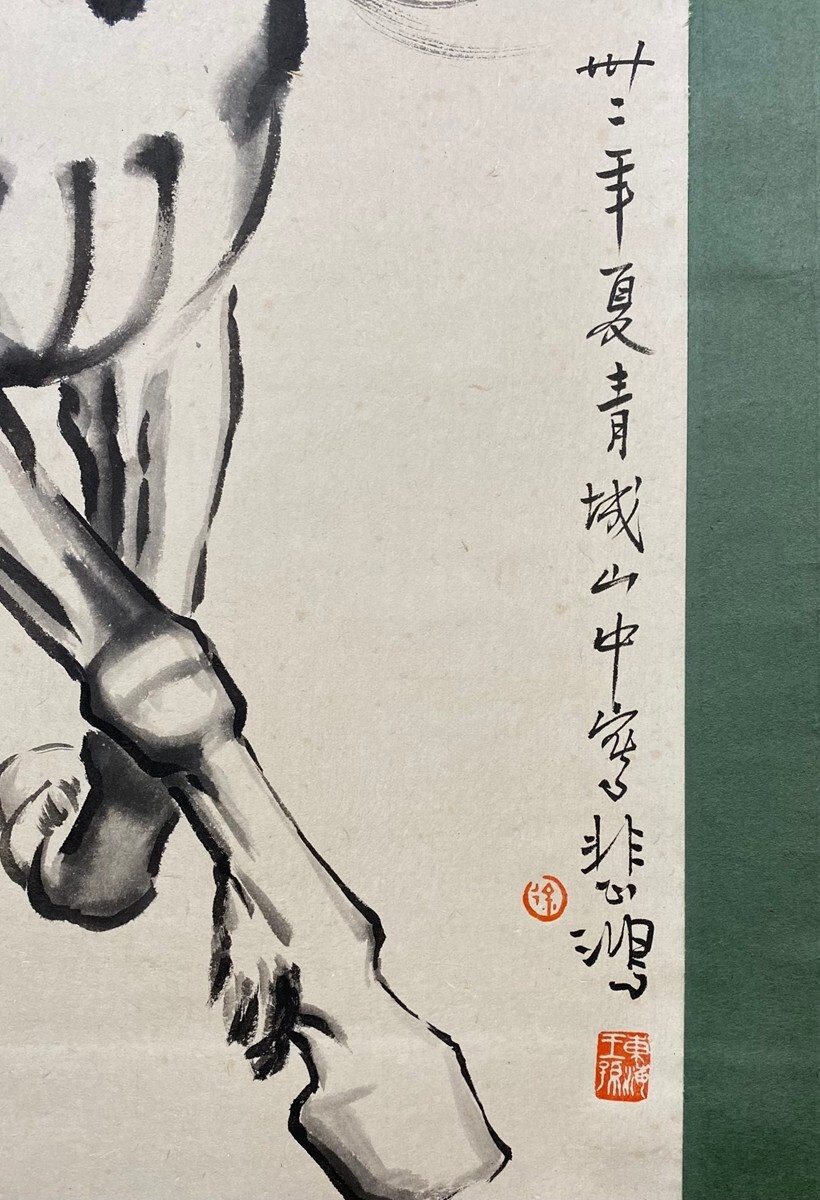 卅二年夏青城山中寫悲鴻
徐
東海王孫